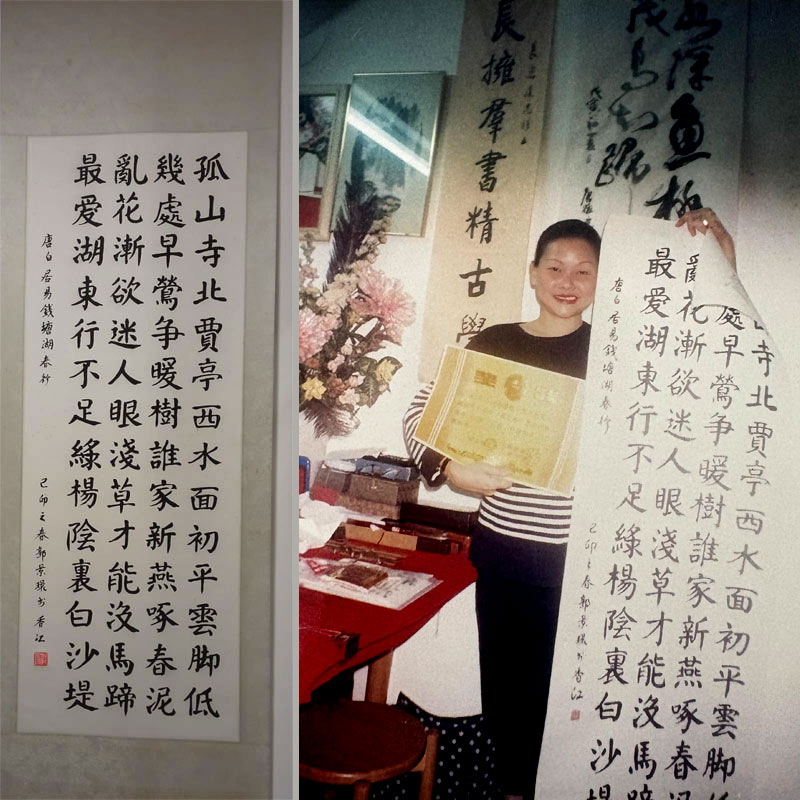 孤山寺北賈亭西水面初平雲脚低
幾處早鶯爭暖樹誰家新燕啄春泥
亂花漸欲迷人眼淺草才能没馬蹄
最爱湖東行不足綠楊陰裏白沙堤
唐白居易錢塘湖春行
己卯之春郭景环书香江
深魚極
茂鳥知歸
長擁羣書精古學
寺北賈亭西水面初平雲脚
處早鶯爭暖樹誰家新燕啄春
花漸欲迷人眼淺草才能没馬蹄
最爱湖東行不足綠楊陰裏白沙堤
唐白居易錢塘湖春行
己卯之春郭景环书香江